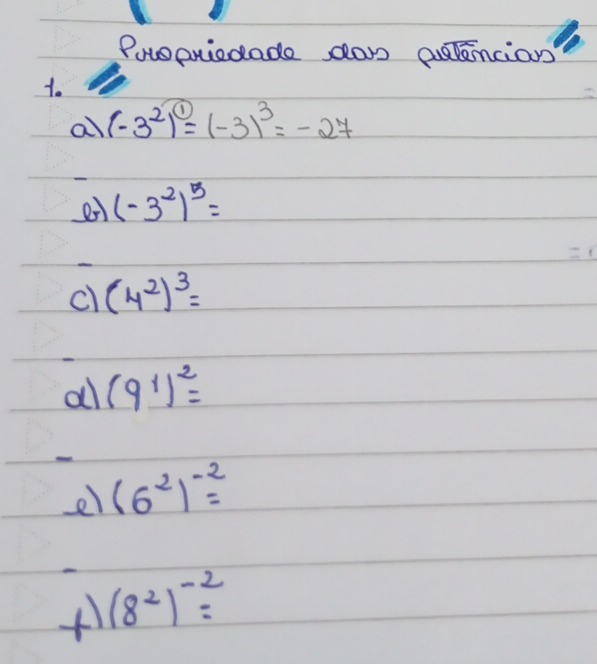 Propriedade das potências
1.
a) (-3²)^① = (-3)³ = -27
b) (-3²)⁵ =
c) (4²)³ =
d) (9¹)² =
e) (6²)⁻² =
f) (8²)⁻² =